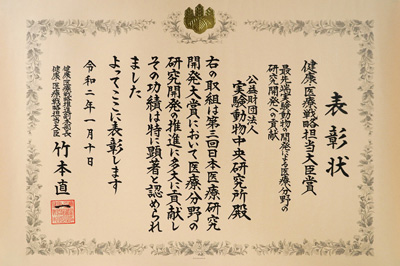 表彰状
健康・医療戦略担当大臣賞
最先端実験動物の開発による医療分野の
研究開発への貢献
公益財団法人
実験動物中央研究所殿
右の取組は第三回日本医療研究
開発大賞において医療分野の
研究開発の推進に多大に貢献し
その功績は特に顕著と認められ
ました
よってここに表彰します
令和二年一月十日
健康・医療戦略推進本部副本部長
健康・医療戦略担当大臣
竹本直一